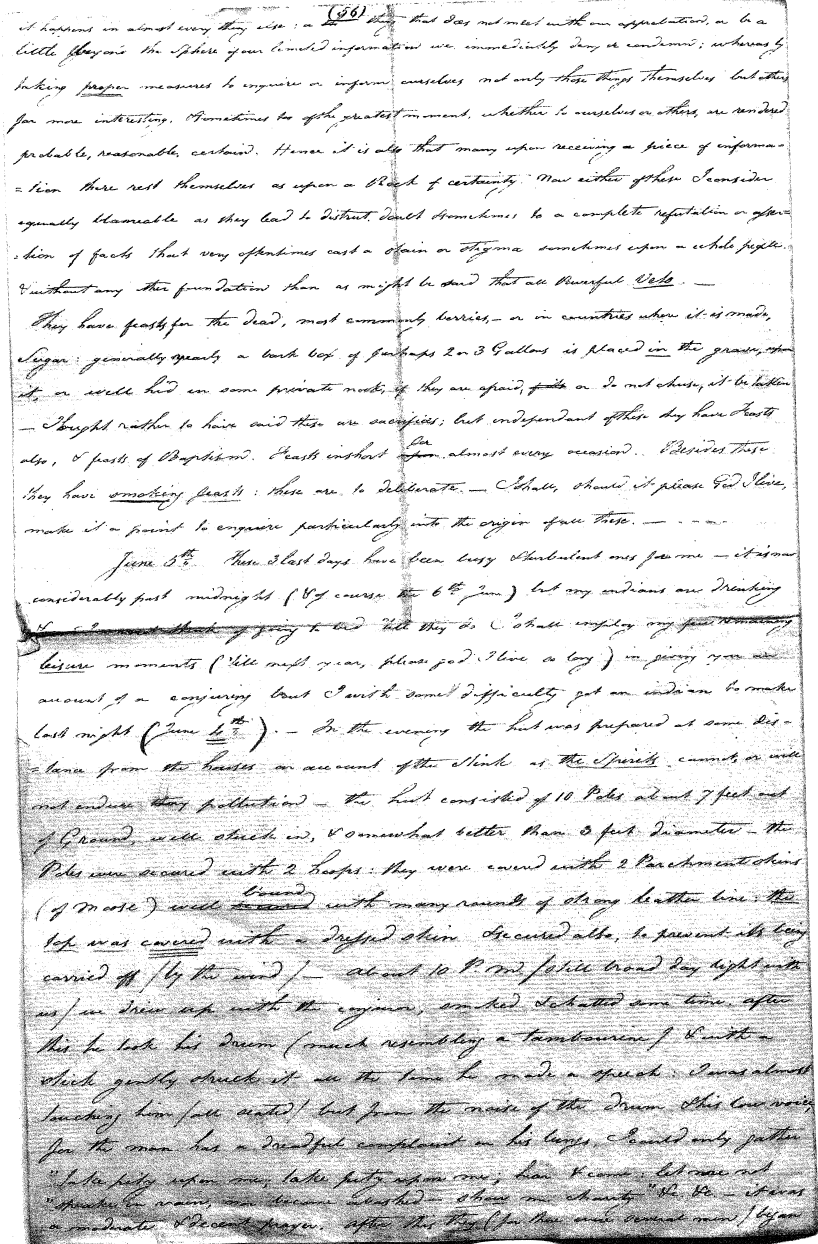 (56)
it happens in almost every thing else: a thing that does not meet with our approbation, or be a
little beyond the Sphere of our limited information we immediately deny or condemn; whereas by
taking proper measures to enquire or inform ourselves not only those things themselves but others
far more interesting, Sometimes too of the greatest moment, whether to ourselves or others, are rendered
probable, reasonable, certain. Hence it is also that many upon receiving a piece of informa=
=tion there rest themselves as upon a Rock of certainty. Now either of these I consider
equally blameable as they lead to distrust, doubt & sometimes to a complete refutation or asser=
=tion of facts that very oftentimes cast a stain or stigma sometimes upon a whole people.
& without any other foundation than as might be said that all Powerful Veto. —
They have feasts for the dead, most commonly berries, — or in countries where it is made,
Sugar: generally yearly a bark box of perhaps 2 or 3 Gallons is placed in the grave, upon
it, or well hid in some private nook, if they are afraid, or do not chuse, it be taken
— I ought rather to have said these are sacrifices; but independant of these they have Feasts
also, & feasts of Baptism. Feasts in short upon for almost every occasion. Besides these
they have smoking feasts: these are to deliberate. — I shall, should it please God I live,
make it a point to enquire particularly into the origin of all these. — - - -
June 5th. These 3 last days have been busy & turbulent ones for me — it is now
considerably past midnight (& of course the 6th June) but my indians are drinking
& I must not think of going to bed 'till they do I shall employ my few remaining
leisure moments ('till next year, please god I live so long) in giving you an
account of a conjuring bout I with some difficulty got an indian to make
last night (June 4th). — In the evening the hut was prepared at some dis=
=tance from the houses on account of the Stink as the Spirits cannot, or will
not endure any pollution — the hut consisted of 10 Poles about 7 feet out
of Ground, well stuck in, & somewhat better than 3 feet diameter — the
Poles were secured with 2 hoops: they were covered with 2 Parchment skins
(of Moose) well secured bound with many rounds of strong leather line: the
top was covered with a dressed skin & secured also, to prevent its being
carried off /by the wind/ — about 10 P.M. /still broad day light with
us/ we drew up with the conjuror, smoked & chatted some time. after
this he took his drum (much resembling a tambourine) & with a
stick gently struck it all the time he made a speech: I was almost
touching him /all seated/ but from the noise of the drum & his low voice,
for the man has a dreadful complaint on his lungs, I could only gather
"take pity upon me; take pity upon me; hear & come; let me not
"speak in vain, nor become abashed — show me charity" &c. &c. — it was
a moderate & decent prayer. after this they (for there were several men) began